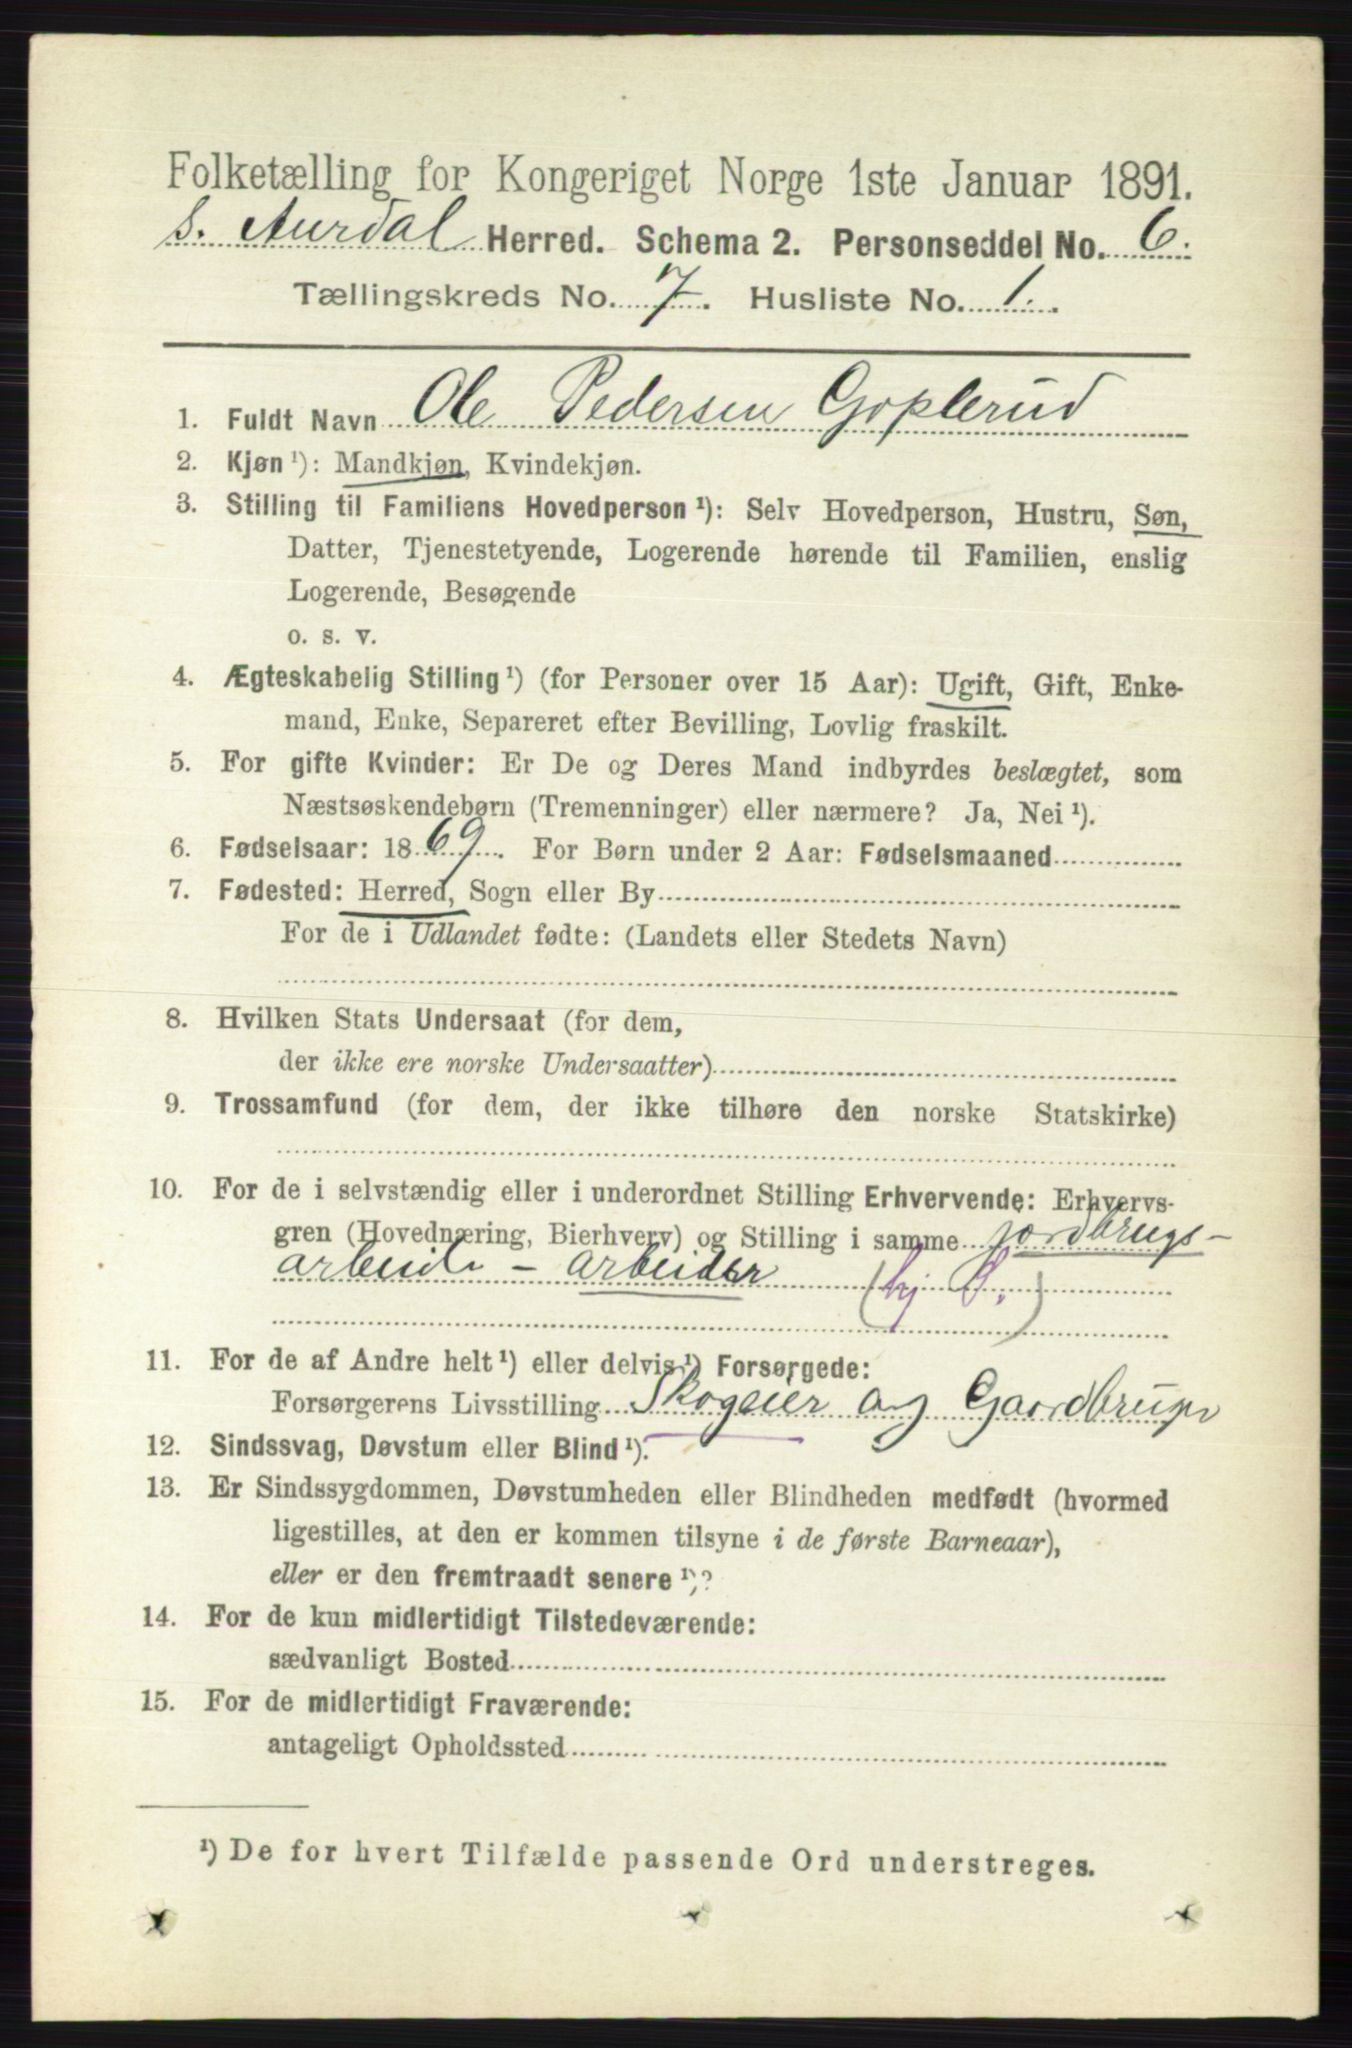 Folketælling for Kongeriget Norge 1ste Januar 1891.
S. Aurdal Herred. Schema 2. Personseddel No. 6.
Tællingskreds No. 7. Husliste No. 1.
1. Fuldt Navn Ole Pedersen Goplerud
2. Kjøn ¹): Mandkjøn, Kvindekjøn.
3. Stilling til Familiens Hovedperson ¹): Selv Hovedperson, Hustru, Søn,
Datter, Tjenestetyende, Logerende hørende til Familien, enslig
Logerende, Besøgende
o. s. v.
4. Ægteskabelig Stilling ¹) (for Personer over 15 Aar): Ugift, Gift, Enke-
mand, Enke, Separeret efter Bevilling, Lovlig fraskilt.
5. For gifte Kvinder: Er De og Deres Mand indbyrdes beslægtet, som
Næstsøskendebørn (Tremenninger) eller nærmere? Ja, Nei ¹).
6. Fødselsaar: 1869. For Børn under 2 Aar: Fødselsmaaned
7. Fødested: Herred, Sogn eller By
For de i Udlandet fødte: (Landets eller Stedets Navn)
8. Hvilken Stats Undersaat (for dem,
der ikke ere norske Undersaatter)
9. Trossamfund (for dem, der ikke tilhøre den norske Statskirke)
10. For de i selvstændig eller i underordnet Stilling Erhvervende: Erhvervs-
gren (Hovednæring, Bierhverv) og Stilling i samme jordbrugs-
arbeide - arbeider (hj
11. For de af Andre helt ¹) eller delvis ¹) Forsørgede:
Forsørgerens Livsstilling Skogeier og Gaardbruger
12. Sindssvag, Døvstum eller Blind ¹).
13. Er Sindssygdommen, Døvstumheden eller Blindheden medfødt (hvormed
ligestilles, at den er kommen tilsyne i de første Barneaar),
eller er den fremtraadt senere ¹)?
14. For de kun midlertidigt Tilstedeværende:
sædvanligt Bosted
15. For de midlertidigt Fraværende:
antageligt Opholdssted
¹) De for hvert Tilfælde passende Ord understreges.